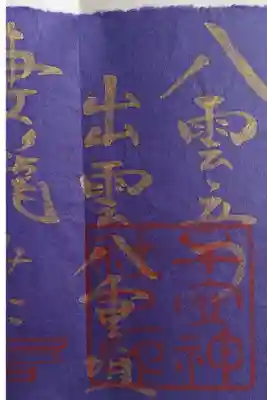 八雲立つ
出雲八重垣
妻籠みに